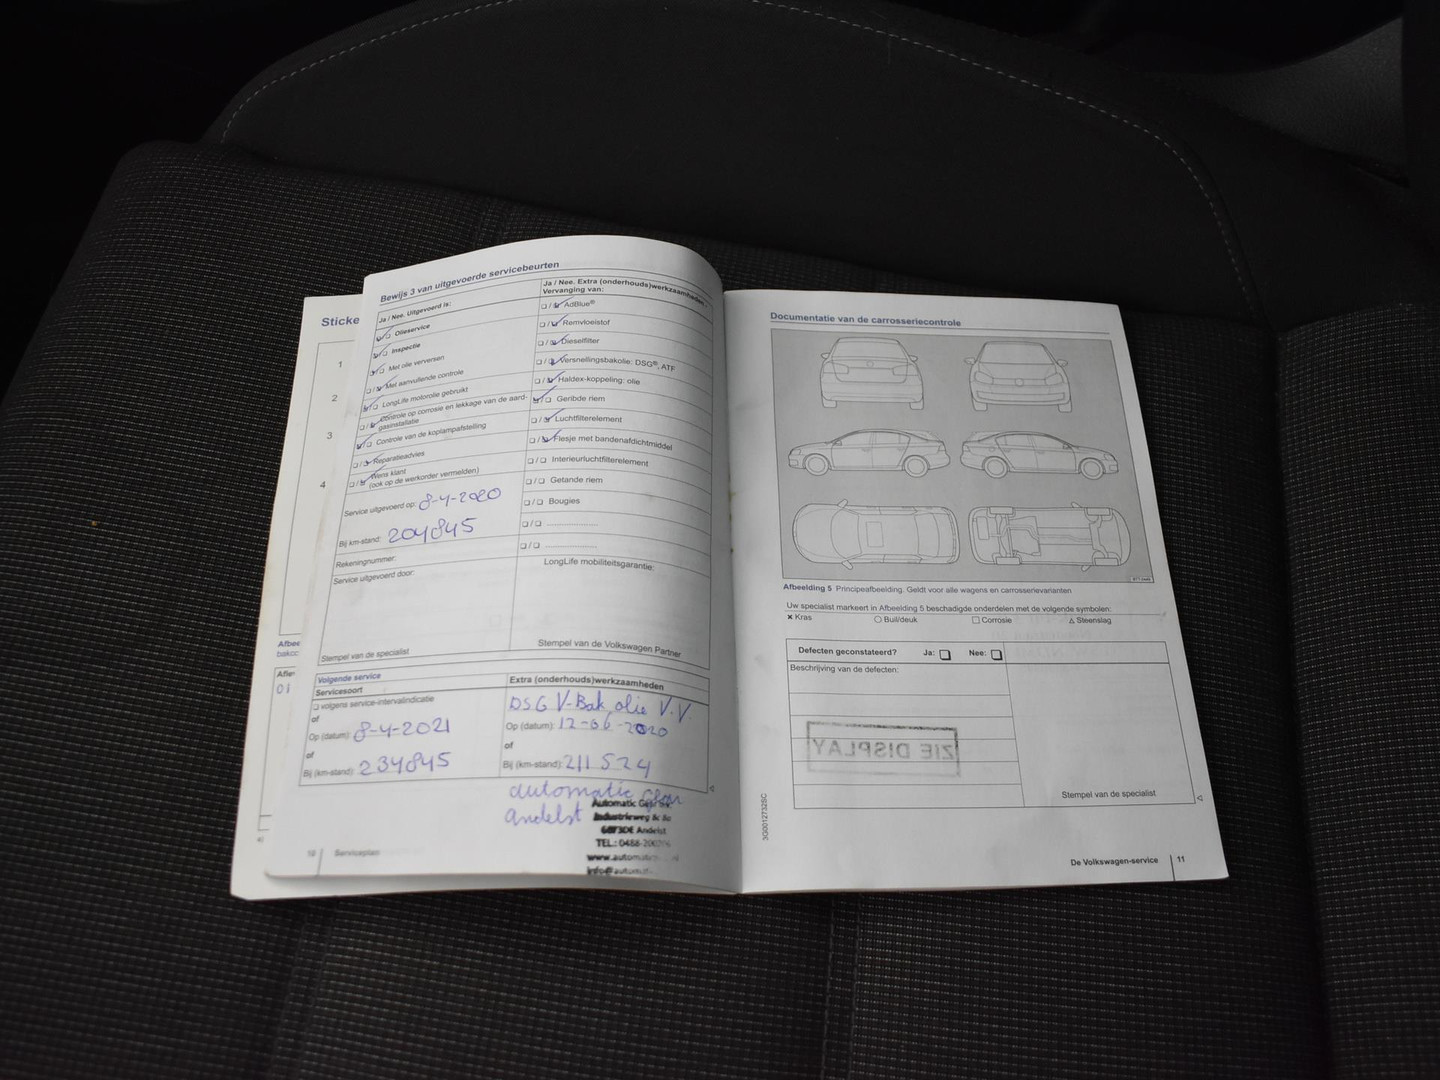 Sticke
1
2
3
4
Afbee
bakcc
01
Bewijs 3 van uitgevoerde servicebeurten
Ja / Nee. Uitgevoerd is:
Olieservice
Inspectie
Met olie verversen
Met aanvullende controle
LongLife motorolie gebruikt
Controle op corrosie en lekkage van de aard-
gasinstallatie
Controle van de koplampafstelling
Reparatieadvies
Wens klant
(ook op de werkorder vermelden)
Service uitgevoerd op: 8-4-2020
Bij km-stand: 204845
Rekeningnummer:
Service uitgevoerd door:
Stempel van de specialist
Ja / Nee. Extra (onderhouds)werkzaamheden
Vervanging van:
AdBlue®
Remvloeistof
Dieselfilter
Versnellingsbakolie: DSG®, ATF
Haldex-koppeling: olie
Geribde riem
Luchtfilterelement
Flesje met bandenafdichtmiddel
Interieurluchtfilterelement
Getande riem
Bougies
LongLife mobiliteitsgarantie:
Stempel van de Volkswagen Partner
Volgende service
Servicesoort
volgens service-intervalindicatie
of
Op (datum): 8-4-2021
of
Bij (km-stand): 234845
Extra (onderhouds)werkzaamheden
DSG V-Bak olie V.V.
Op (datum): 12-06-2020
of
Bij (km-stand): 211524
automatic Gear
andelst
Automatic Gear
Industrieweg
Andelst
TEL.: 0488-
www.automatic
info@automat
10 Serviceplan
Documentatie van de carrosseriecontrole
Afbeelding 5 Principeafbeelding. Geldt voor alle wagens en carrosserievarianten
Uw specialist markeert in Afbeelding 5 beschadigde onderdelen met de volgende symbolen:
Kras Buil/deuk Corrosie Steenslag
Defecten geconstateerd? Ja: Nee:
Beschrijving van de defecten:
ZIE DISPLAY
Stempel van de specialist
3G0012732SC
De Volkswagen-service 11